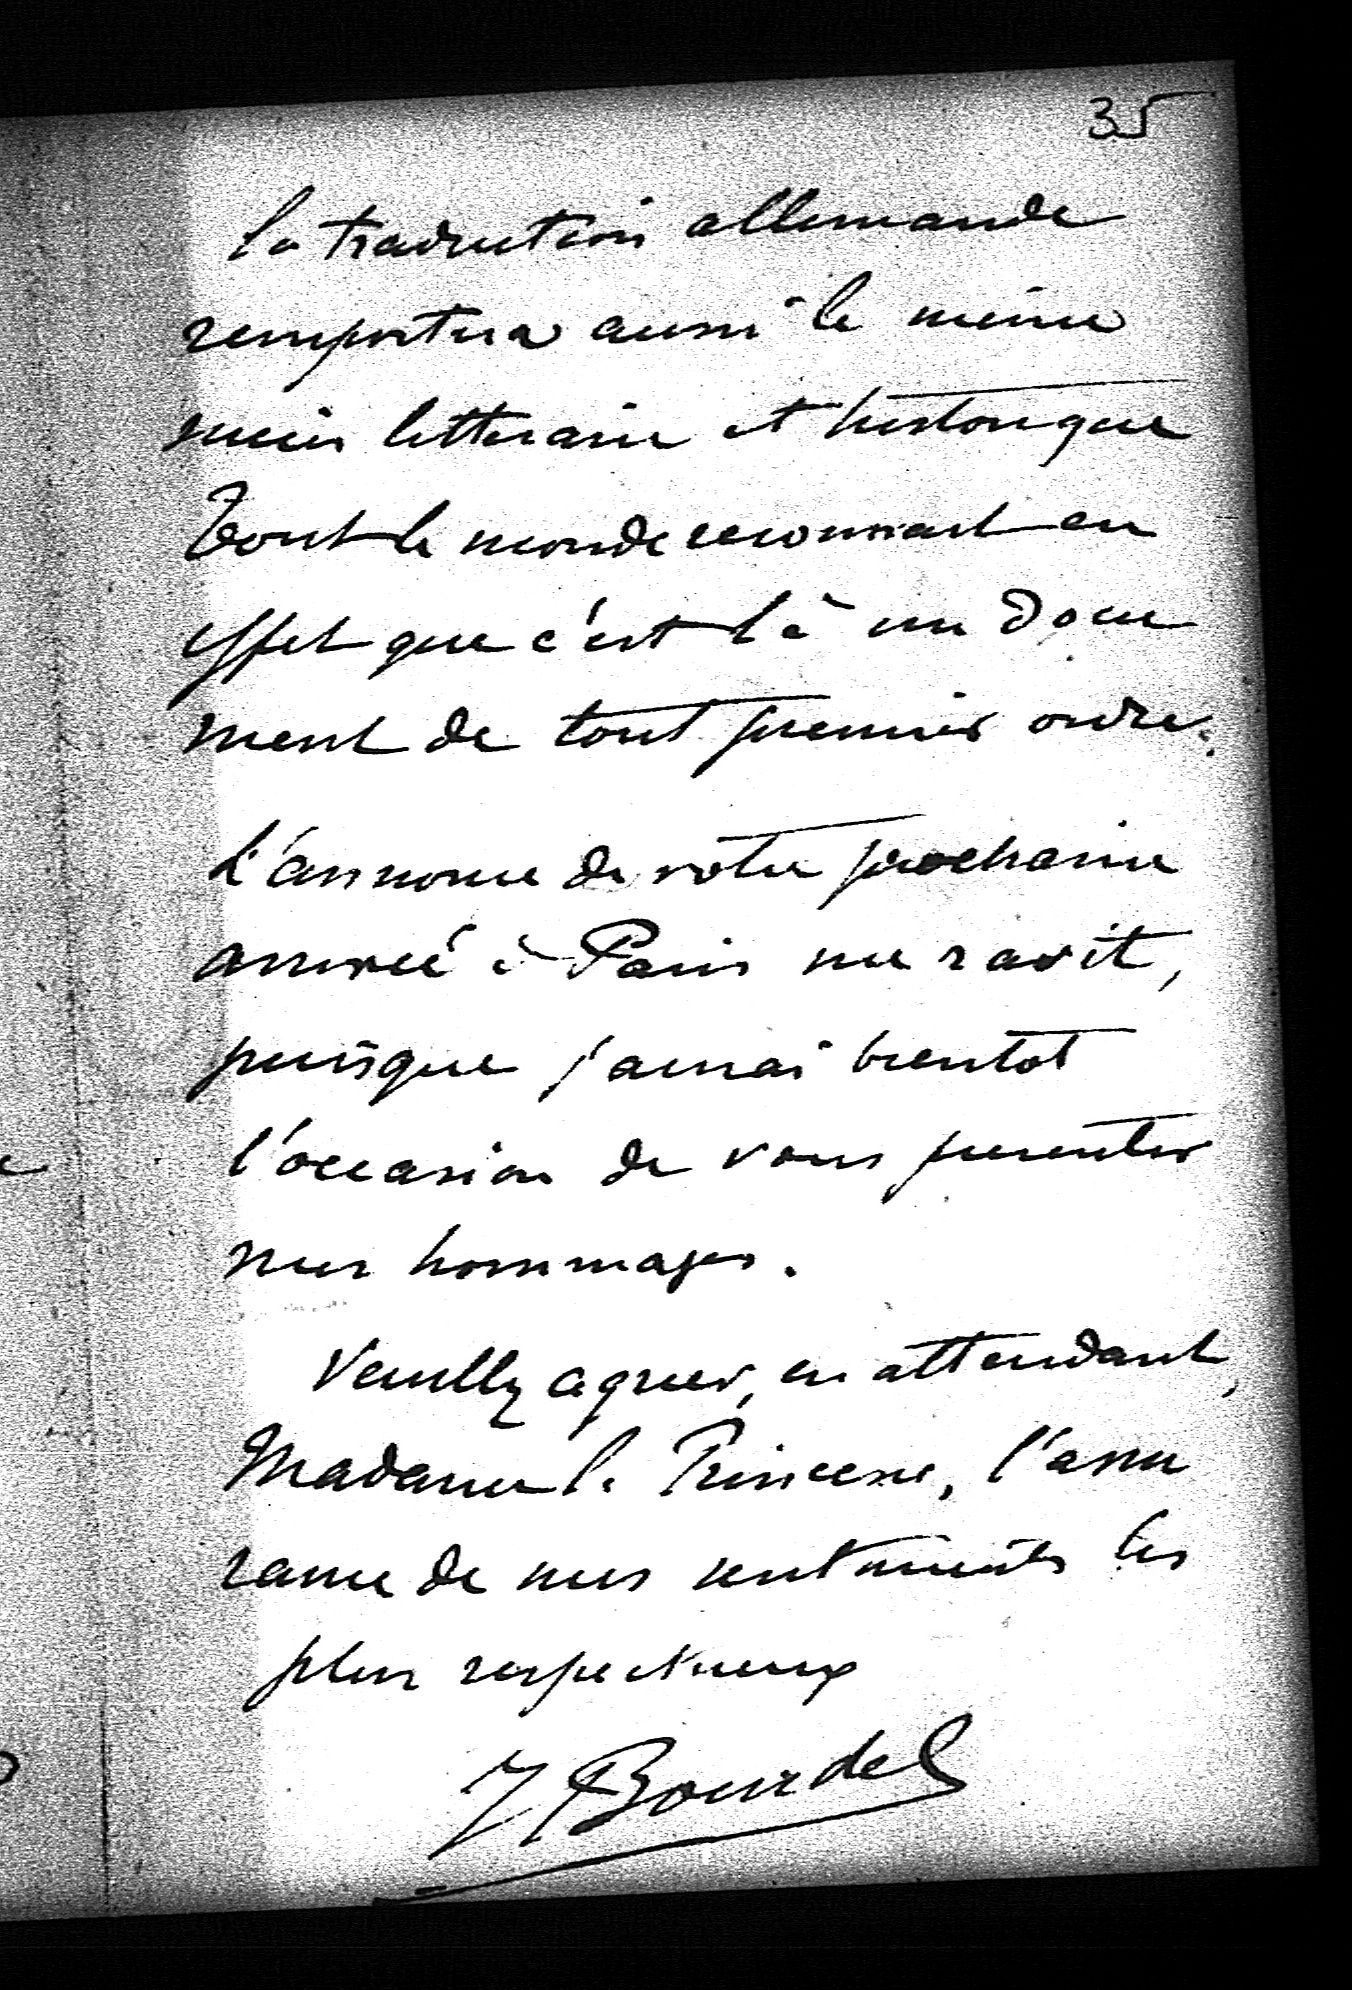 35
la traduction allemande
remportera aussi le même
succès litteraire et historique
Tout le monde reconnait en
effet que c'est là un docu
ment de tout premier ordre.
L'annonce de votre prochaine
arrivée à Paris me ravit,
puisque j'aurai bientot
l'occasion de vous presenter
mes hommages.
Veuillez agreer, en attendant,
Madame la Princesse, l'assu
rance de mes sentiments les
plus respectueux
J Bourdel